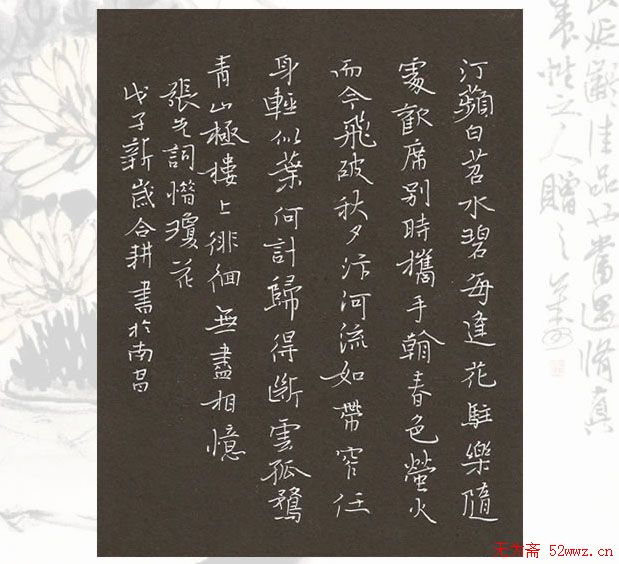 汀蘋白苕水碧每逢花駐樂隨
處歡席別時攜手翰春色螢火
而今飛破秋夕汴河流如帶窄任
身輕似葉何計歸得斷雲孤鶩
青山極樓上徘徊無盡相憶
張先詞惜瓊花
戊子新歲合耕書於南昌
延齡佳品也當遇脩真
養性之人贈之
无为斋 52wwz.cn